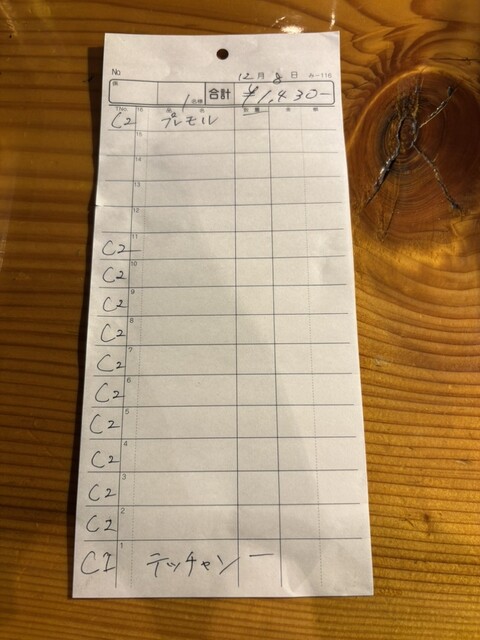 No 12月8日 み-116
様 1名様 合計 ¥1,430-
T.No. 16 品名 数量 金額
C2 プレモル
15
14
13
12
C2 11
C2 10
C2 9
C2 8
C2 7
C2 6
C2 5
C2 4
C2 3
C2 2
CI 1 テッチャン 一